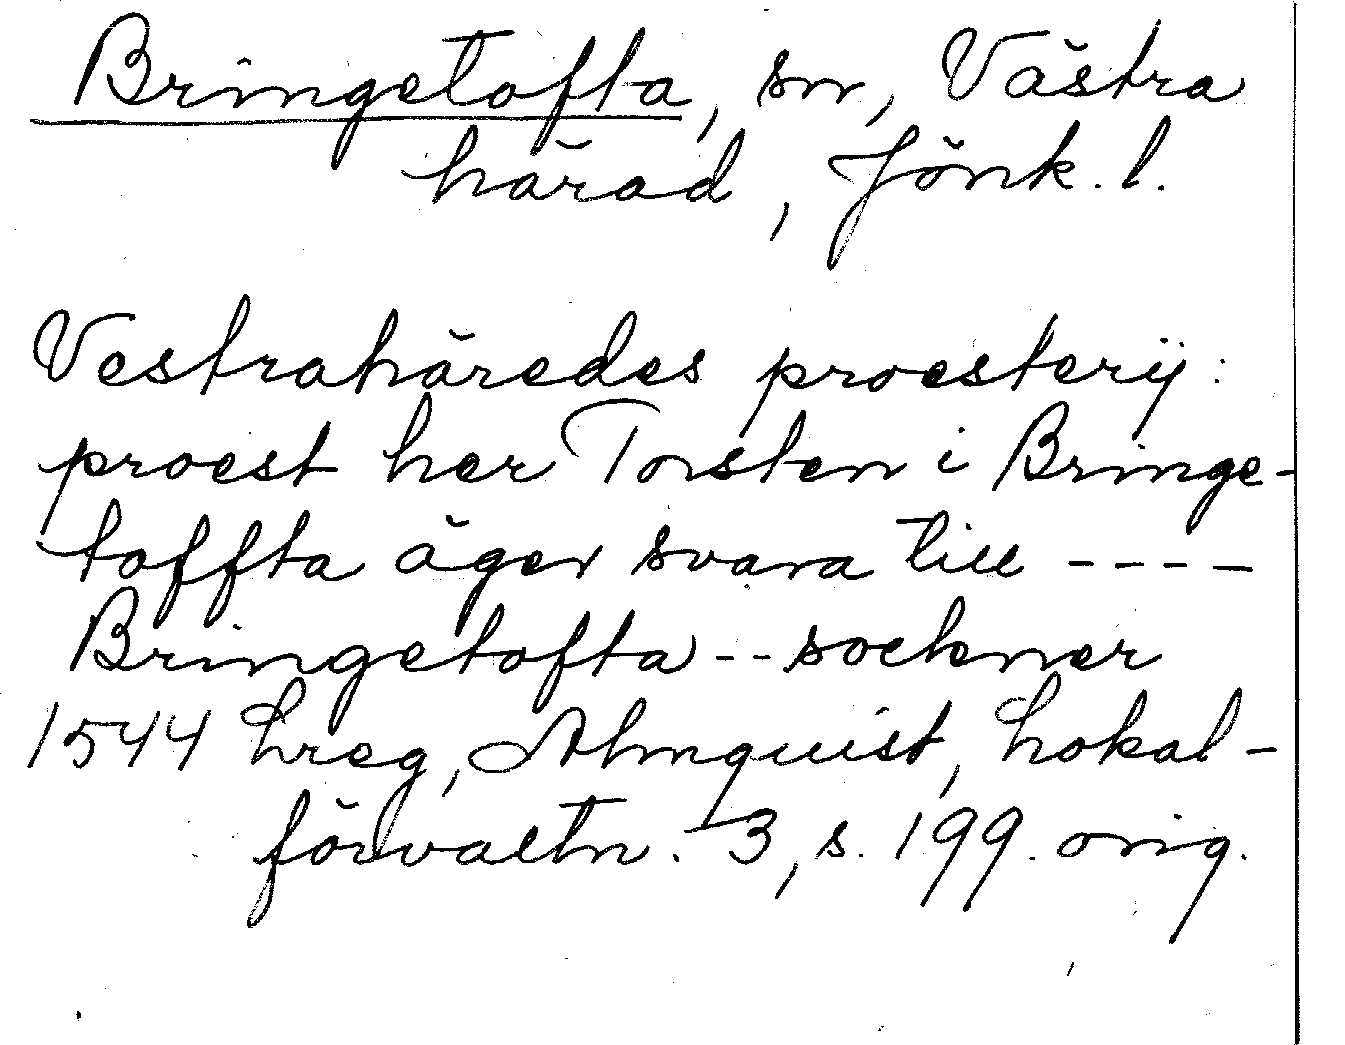 Bringetofta, sn, Västra
härad, Jönk. l.
Vestrahäredes proesterij:
proest her Torsten i Bringe-
toffta äger svara till ----
Bringetofta -- sockner
1544 hreg, Almquist, Lokal-
förvaltn. 3, s. 199. orig.